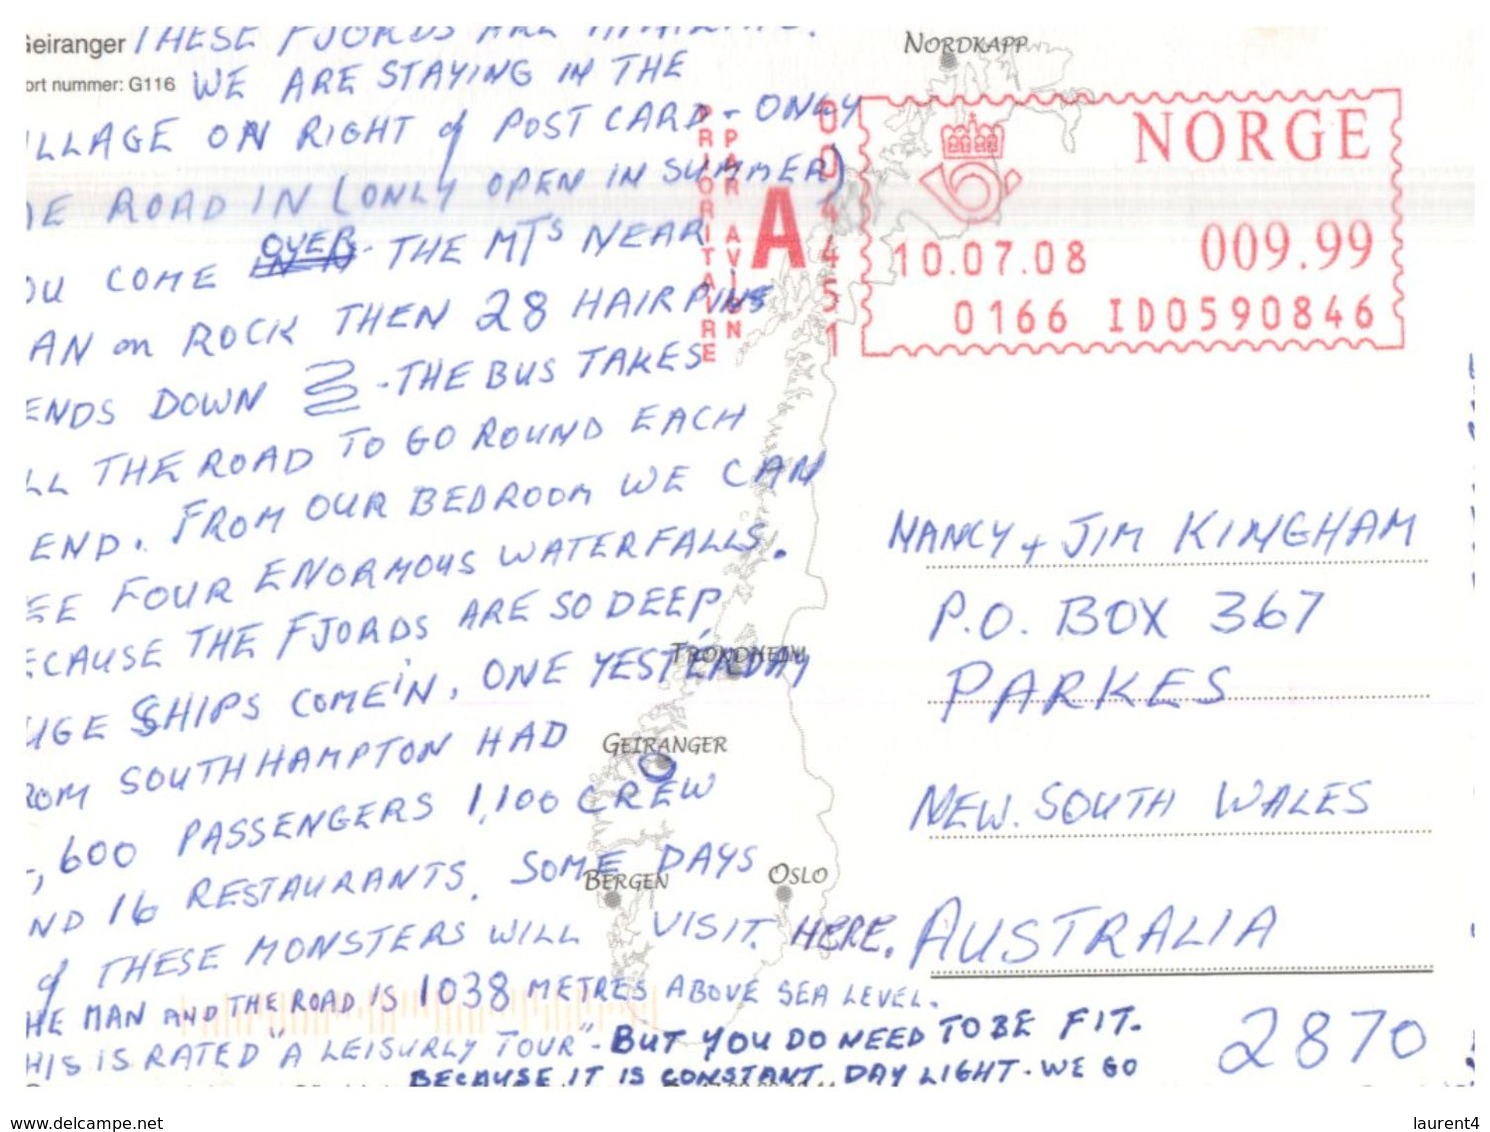 Geiranger THESE FJORDS ARE
ort nummer: G116 WE ARE STAYING IN THE
ILLAGE ON RIGHT of POST CARD - ONLY
HE ROAD IN (ONLY OPEN IN SUMMER)
OU COME OVER - THE MTS NEAR
AN on ROCK THEN 28 HAIRPINS
ENDS DOWN - THE BUS TAKES
LL THE ROAD TO GO ROUND EACH
END. FROM OUR BEDROOM WE CAN
EE FOUR ENORMOUS WATERFALLS.
ECAUSE THE FJORDS ARE SO DEEP,
UGE SHIPS COME IN. ONE YESTERDAY
ROM SOUTHHAMPTON HAD
,600 PASSENGERS 1,100 CREW
ND 16 RESTAURANTS. SOME DAYS
of THESE MONSTERS WILL VISIT. HERE.
HE MAN AND THE ROAD IS 1038 METRES ABOVE SEA LEVEL.
HIS IS RATED "A LEISURLY TOUR" - BUT YOU DO NEED TO BE FIT-
BECAUSE IT IS CONSTANT DAY LIGHT - WE GO
NORDKAPP
TRONDHEIM
GEIRANGER
BERGEN
OSLO
PRIORITAIRE
PAR AVION
A
004451
NORGE
009.99
10.07.08
0166 ID0590846
NANCY + JIM KINGHAM
P.O. BOX 367
PARKES
NEW. SOUTH WALES
AUSTRALIA
2870
www.delcampe.net
laurent4